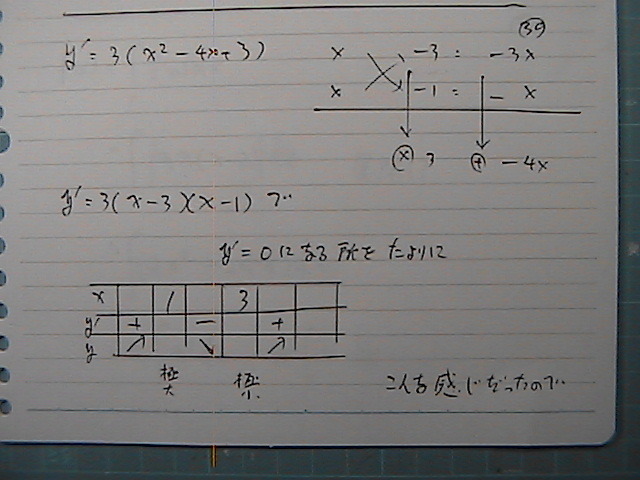 ㊴
y' = 3(x² - 4x + 3)
x -3 = -3x
x -1 = - x
ⓧ 3 ⊕ -4x
y' = 3(x-3)(x-1) で
y' = 0 になる所をたよりに
x 1 3
y' + - +
y ↗ ↘ ↗
極大 極小
こんな感じだったので